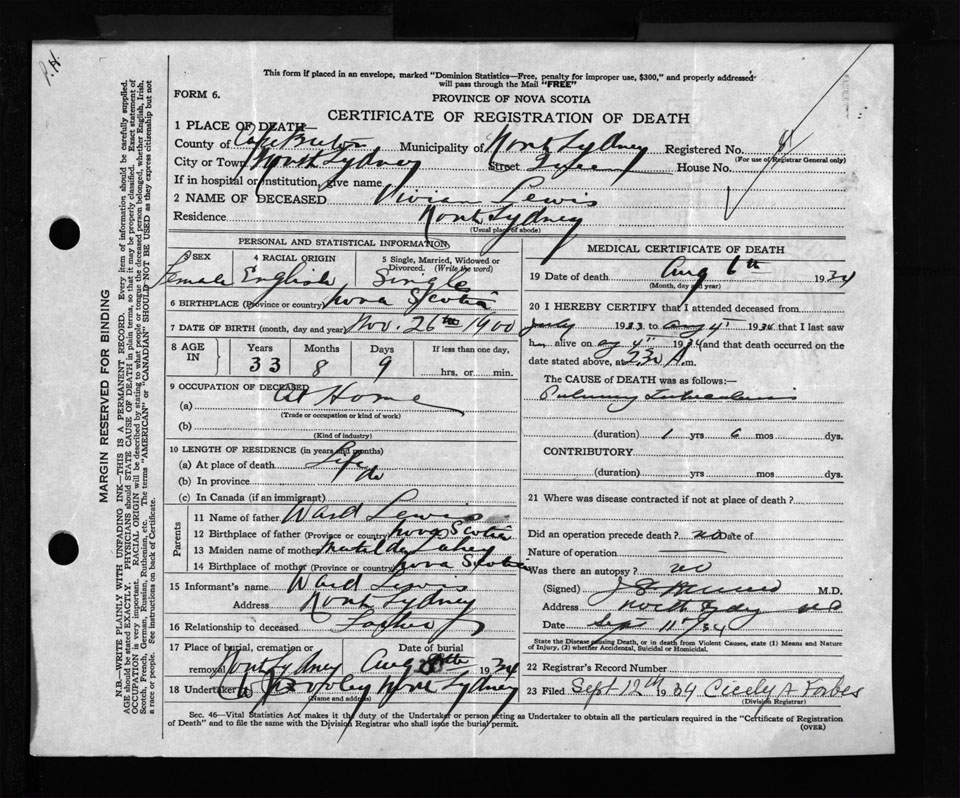 P.H.
This form if placed in an envelope, marked "Dominion Statistics—Free, penalty for improper use, $300," and properly addressed
will pass through the Mail "FREE"
FORM 6.
PROVINCE OF NOVA SCOTIA
CERTIFICATE OF REGISTRATION OF DEATH
1 PLACE OF DEATH—
County of Cape Breton Municipality of North Sydney Registered No.
(For use of Registrar General only)
City or Town North Sydney Street House No.
If in hospital or institution, give name
2 NAME OF DECEASED Vivian Lewis
Residence North Sydney
(Usual place of abode)
PERSONAL AND STATISTICAL INFORMATION
3 SEX 4 RACIAL ORIGIN 5 Single, Married, Widowed or Divorced. (Write the word)
Female English Single
6 BIRTHPLACE (Province or country) Nova Scotia
7 DATE OF BIRTH (month, day and year) Nov. 26th 1900
8 AGE IN Years Months Days If less than one day,
33 8 9 hrs. or min.
9 OCCUPATION OF DECEASED
(a) At Home
(Trade or occupation or kind of work)
(b)
(Kind of industry)
10 LENGTH OF RESIDENCE (in years and months)
(a) At place of death Life
(b) In province do
(c) In Canada (if an immigrant)
Parents
11 Name of father Ward Lewis
12 Birthplace of father (Province or country) Nova Scotia
13 Maiden name of mother Matilda
14 Birthplace of mother (Province or country) Nova Scotia
15 Informant's name Ward Lewis
Address North Sydney
16 Relationship to deceased Father
17 Place of burial, cremation or removal Date of burial
North Sydney Aug 1934
18 Undertaker North Sydney
(Name and address)
MEDICAL CERTIFICATE OF DEATH
19 Date of death Aug 6th 1934
(Month, day and year)
20 I HEREBY CERTIFY that I attended deceased from
July 1933 to Aug 4th 1934 that I last saw
h alive on Aug 4th 1934 and that death occurred on the
date stated above, at 2.30 A.m.
The CAUSE of DEATH was as follows:—
Pulmonary Tuberculosis
(duration) 1 yrs 6 mos dys.
CONTRIBUTORY
(duration) yrs mos dys.
21 Where was disease contracted if not at place of death?
Did an operation precede death? no Date of
Nature of operation
Was there an autopsy? no
(Signed) M.D.
Address North Sydney N S
Date Sept 11th /34
State the Disease causing Death, or in death from Violent Causes, state (1) Means and Nature of Injury, (2) whether Accidental, Suicidal or Homicidal.
22 Registrar's Record Number
23 Filed Sept 12th 1934 Cicely A Forbes
(Division Registrar)
Sec. 46—Vital Statistics Act makes it the duty of the Undertaker or person acting as Undertaker to obtain all the particulars required in the "Certificate of Registration
of Death" and to file the same with the Division Registrar who shall issue the burial permit.
(OVER)
MARGIN RESERVED FOR BINDING
N.B.—WRITE PLAINLY WITH UNFADING INK—THIS IS A PERMANENT RECORD. Every item of information should be carefully supplied.
AGE should be stated EXACTLY. PHYSICIANS should STATE CAUSE OF DEATH in plain terms, so that it may be properly classified. Exact statement of
OCCUPATION is very important. RACIAL ORIGIN will be described by stating to what people or tongue the deceased person belonged, whether English, Irish,
Scotch, French, German, Russian, Ruthenian, etc. The terms "AMERICAN" or "CANADIAN" SHOULD NOT BE USED as they express citizenship but not
a race or people. See instructions on back of Certificate.